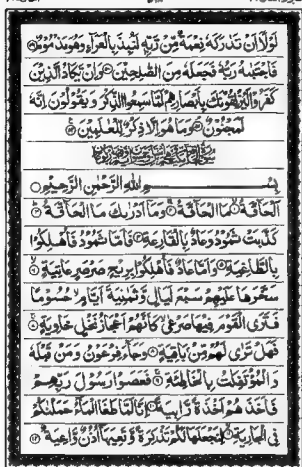 لَوْلَا أَنْ تَدَارَكَهُ نِعْمَةٌ مِنْ رَبِّهِ لَنُبِذَ بِالْعَرَاءِ وَهُوَ مَذْمُومٌ ۝۴۹
فَاجْتَبَاهُ رَبُّهُ فَجَعَلَهُ مِنَ الصَّالِحِينَ ۝۵۰ وَإِنْ يَكَادُ الَّذِينَ
كَفَرُوا لَيُزْلِقُونَكَ بِأَبْصَارِهِمْ لَمَّا سَمِعُوا الذِّكْرَ وَيَقُولُونَ إِنَّهُ
لَمَجْنُونٌ ۝۵۱ وَمَا هُوَ إِلَّا ذِكْرٌ لِلْعَالَمِينَ ۝۵۲
بِسْمِ اللَّهِ الرَّحْمَٰنِ الرَّحِيمِ
الْحَاقَّةُ ۝۱ مَا الْحَاقَّةُ ۝۲ وَمَا أَدْرَاكَ مَا الْحَاقَّةُ ۝۳
كَذَّبَتْ ثَمُودُ وَعَادٌ بِالْقَارِعَةِ ۝۴ فَأَمَّا ثَمُودُ فَأُهْلِكُوا
بِالطَّاغِيَةِ ۝۵ وَأَمَّا عَادٌ فَأُهْلِكُوا بِرِيحٍ صَرْصَرٍ عَاتِيَةٍ ۝۶
سَخَّرَهَا عَلَيْهِمْ سَبْعَ لَيَالٍ وَثَمَانِيَةَ أَيَّامٍ حُسُومًا
فَتَرَى الْقَوْمَ فِيهَا صَرْعَى كَأَنَّهُمْ أَعْجَازُ نَخْلٍ خَاوِيَةٍ ۝۷
فَهَلْ تَرَى لَهُمْ مِنْ بَاقِيَةٍ ۝۸ وَجَاءَ فِرْعَوْنُ وَمَنْ قَبْلَهُ
وَالْمُؤْتَفِكَاتُ بِالْخَاطِئَةِ ۝۹ فَعَصَوْا رَسُولَ رَبِّهِمْ
فَأَخَذَهُمْ أَخْذَةً رَابِيَةً ۝۱۰ إِنَّا لَمَّا طَغَى الْمَاءُ حَمَلْنَاكُمْ
فِي الْجَارِيَةِ ۝۱۱ لِنَجْعَلَهَا لَكُمْ تَذْكِرَةً وَتَعِيَهَا أُذُنٌ وَاعِيَةٌ ۝۱۲